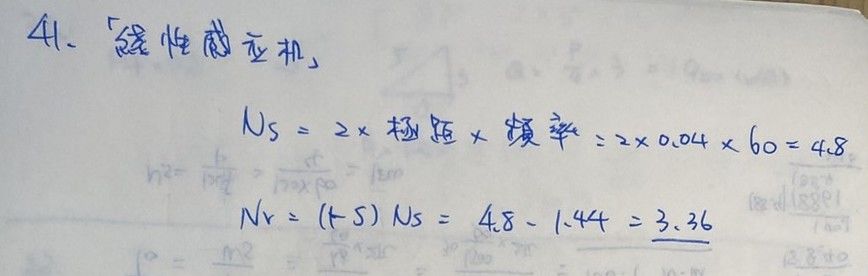 41. 「線性感应机」
Ns = 2 × 極距 × 頻率 = 2 × 0.04 × 60 = 4.8
Nr = (1-S) Ns = 4.8 - 1.44 = 3.36